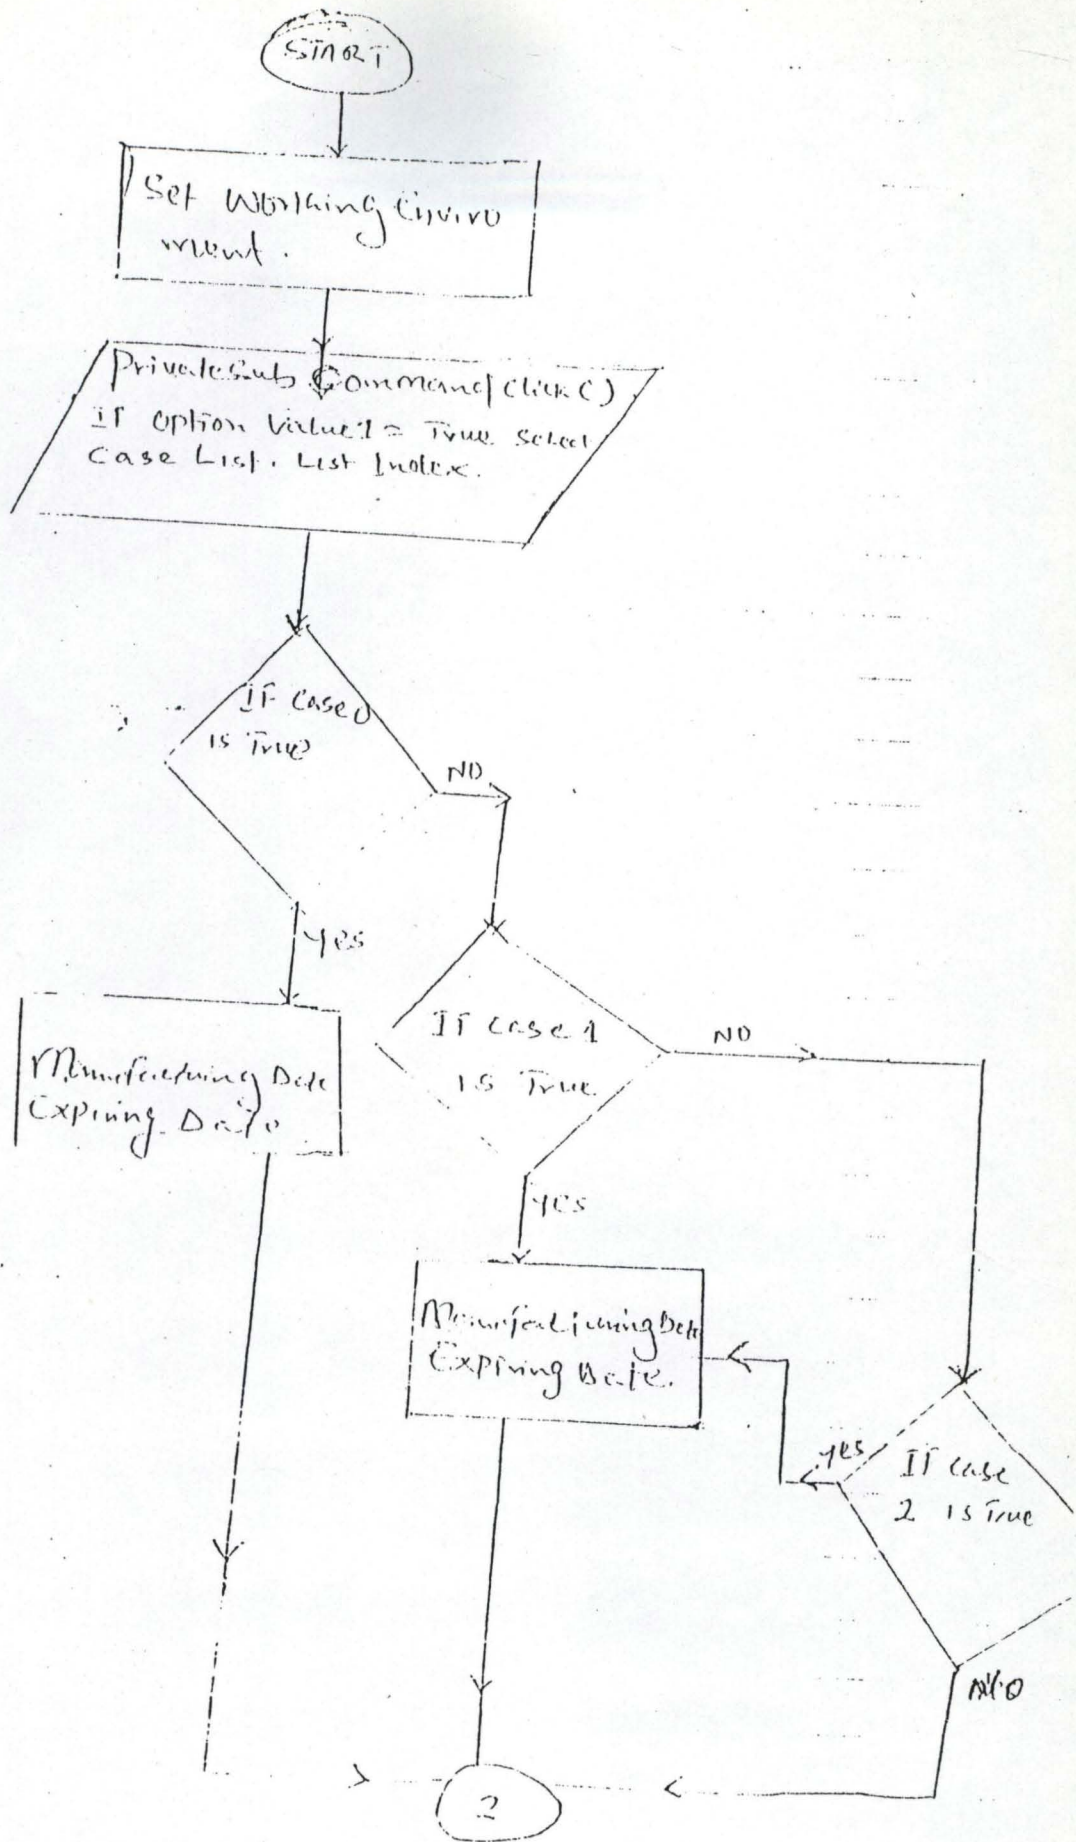 START
Set Working Enviro
ment.
Private Sub Command Click ()
If option Value 1 = True Select
Case List. List Index.
IF Case 0
is True
NO
Yes
Manufacturing Date
Expiring Date
If case 1
is True
NO
yes
Manufacturing Date
Expiring Date.
yes
If case
2 is True
NO
2